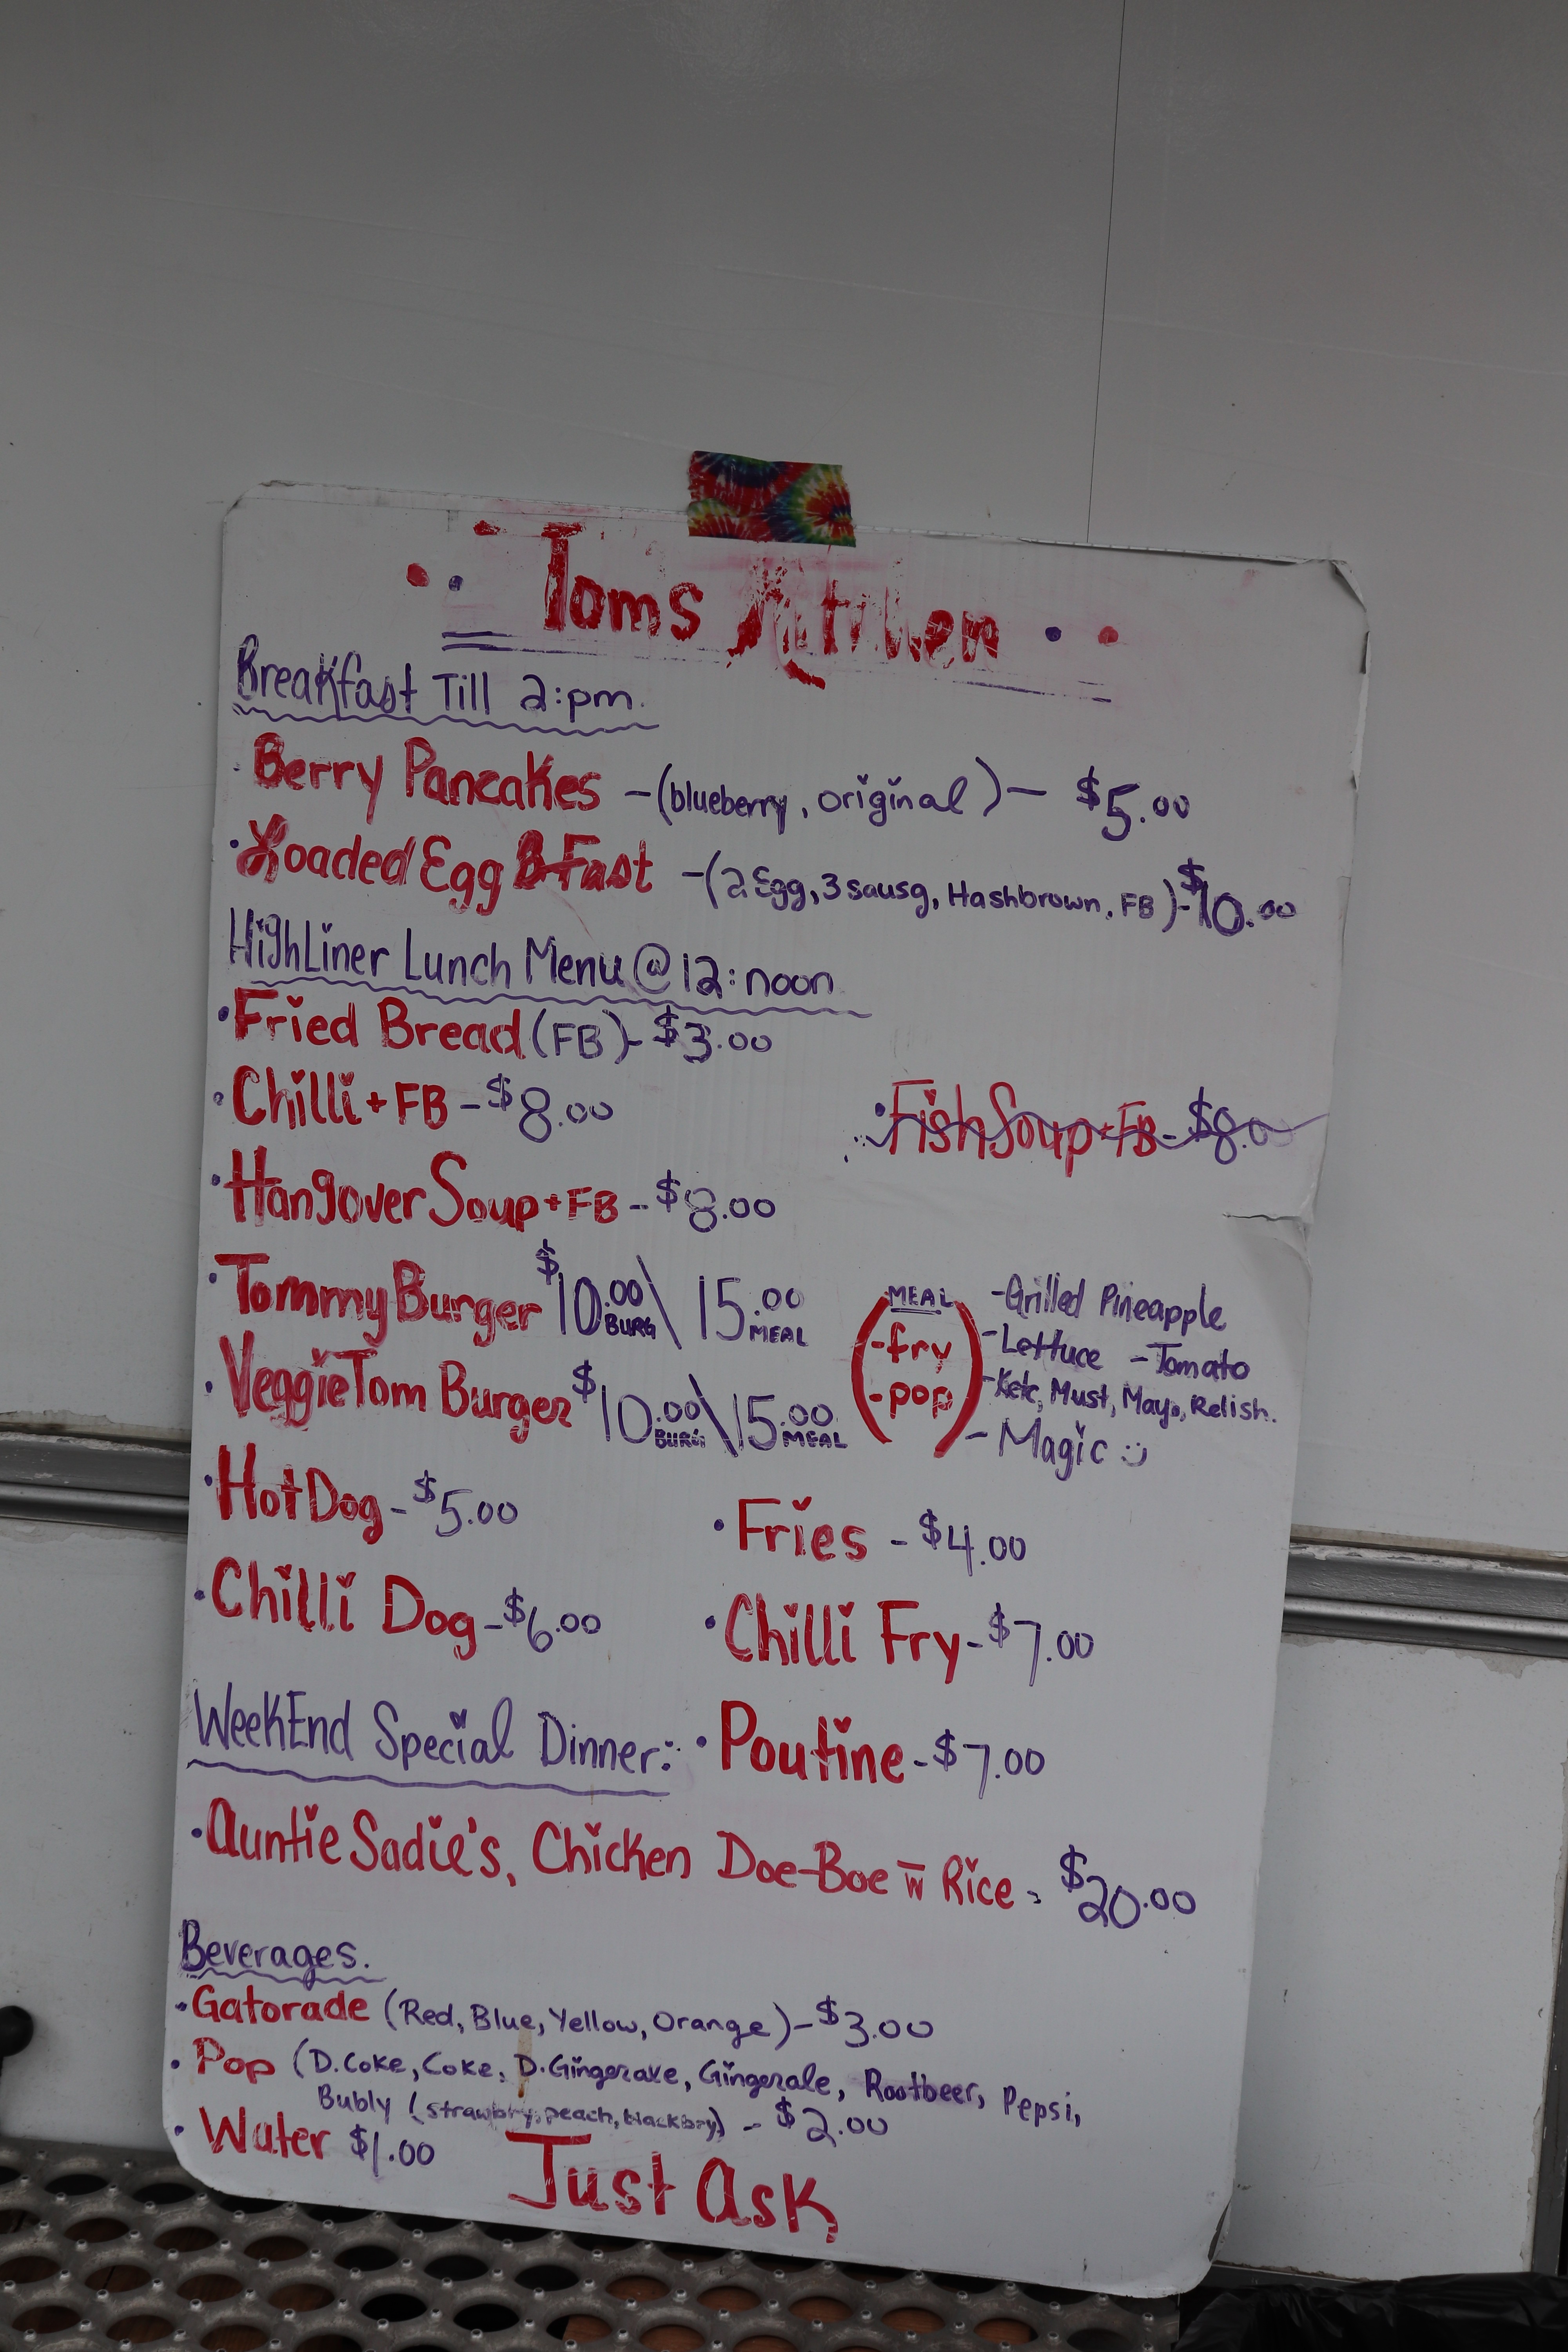 Toms Kitchen
Breakfast Till 2:pm.
• Berry Pancakes -(blueberry, original)- $5.00
• Loaded Egg B-Fast -(2 Egg, 3 sausg, Hashbrown, FB)-$10.00
HighLiner Lunch Menu @ 12:noon
• Fried Bread (FB)- $3.00
• Chilli + FB - $8.00
• Fish Soup + FB - $8.00
• Hangover Soup + FB - $8.00
• Tommy Burger $10.00 BURG \ 15.00 MEAL
• VeggieTom Burger $10.00 BURG \ 15.00 MEAL
MEAL
-fry
-pop
-Grilled Pineapple
-Lettuce -Tomato
-Ketc, Must, Mayo, Relish.
- Magic :)
• Hot Dog - $5.00
• Fries - $4.00
• Chilli Dog - $6.00
• Chilli Fry - $7.00
WeekEnd Special Dinner:
• Poutine - $7.00
• Auntie Sadie's, Chicken Doe-Boe w Rice - $20.00
Beverages.
• Gatorade (Red, Blue, Yellow, Orange) - $3.00
• Pop (D.Coke, Coke, D.Gingerale, Gingerale, Rootbeer, Pepsi,
Bubly (strawbry, peach, blackbry) - $2.00
• Water $1.00
Just Ask